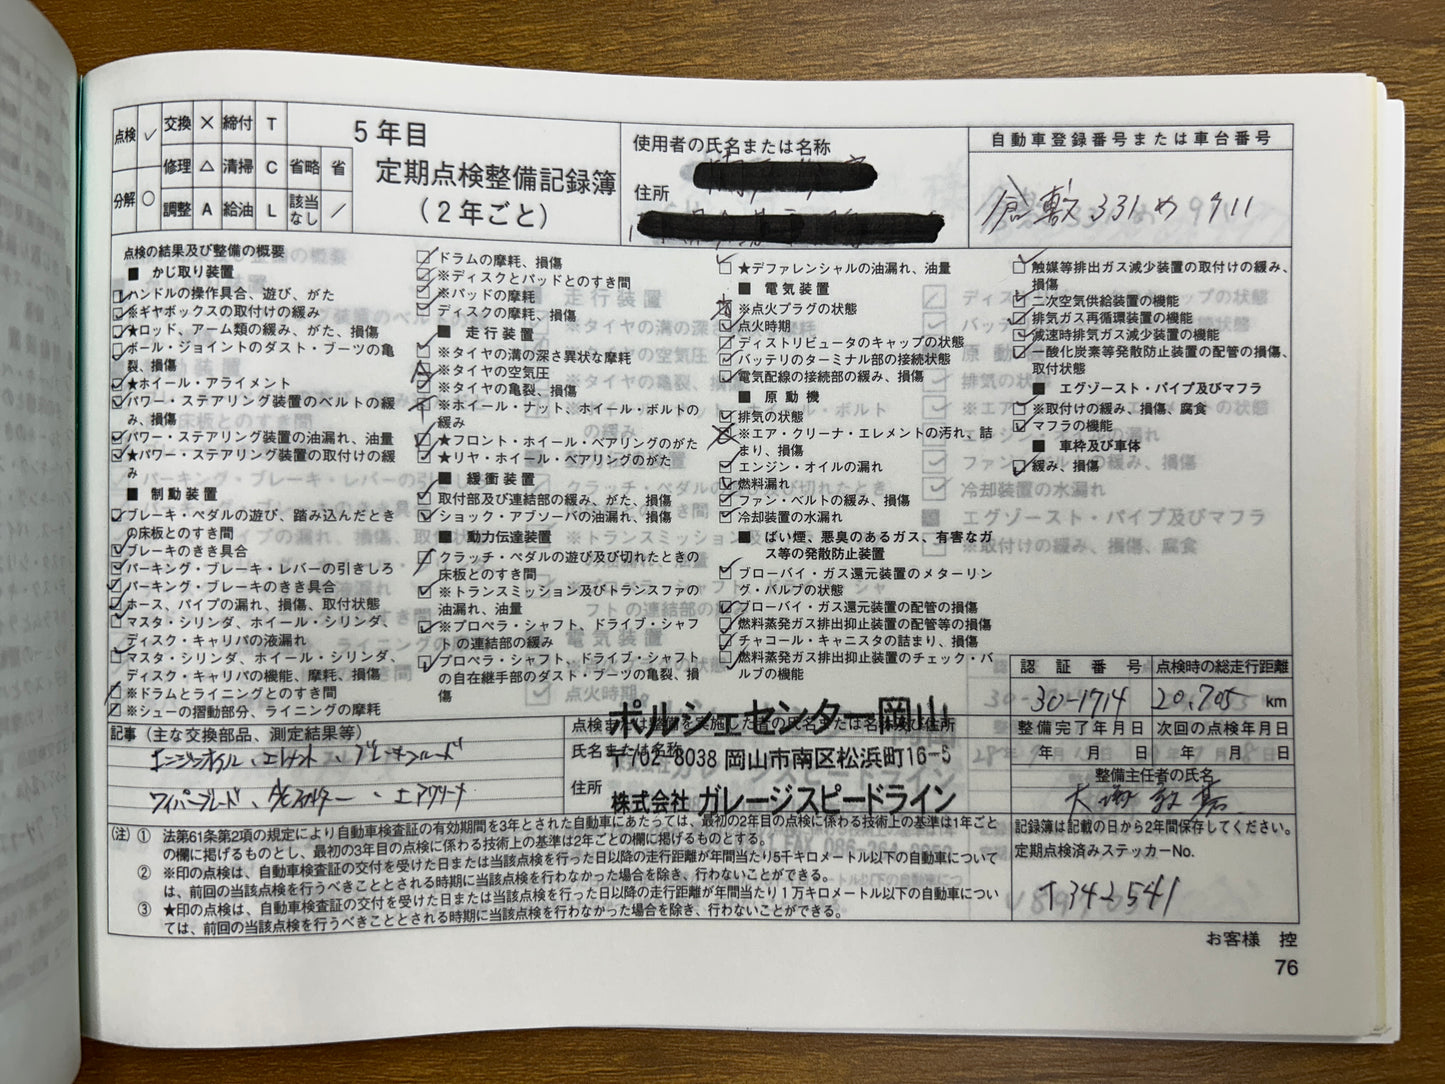 点検 ✓ 交換 × 締付 T
修理 △ 清掃 C 省略 省
分解 ○ 調整 A 給油 L 該当なし ／
5年目
定期点検整備記録簿
(2年ごと)
使用者の氏名または名称
住所
自動車登録番号または車台番号
倉敷 331 め 911
点検の結果及び整備の概要
■ かじ取り装置
ハンドルの操作具合、遊び、がた
※ギヤボックスの取付けの緩み
★ロッド、アーム類の緩み、がた、損傷
ボール・ジョイントのダスト・ブーツの亀
裂、損傷
★ホイール・アライメント
パワー・ステアリング装置のベルトの緩
み、損傷
パワー・ステアリング装置の油漏れ、油量
★パワー・ステアリング装置の取付けの緩
み
■ 制動装置
ブレーキ・ペダルの遊び、踏み込んだとき
の床板とのすき間
ブレーキのきき具合
パーキング・ブレーキ・レバーの引きしろ
パーキング・ブレーキのきき具合
ホース、パイプの漏れ、損傷、取付状態
マスタ・シリンダ、ホイール・シリンダ、
ディスク・キャリパの液漏れ
マスタ・シリンダ、ホイール・シリンダ、
ディスク・キャリパの機能、摩耗、損傷
※ドラムとライニングとのすき間
※シューの摺動部分、ライニングの摩耗
ドラムの摩耗、損傷
※ディスクとパッドとのすき間
※パッドの摩耗
ディスクの摩耗、損傷
■ 走行装置
※タイヤの溝の深さ異状な摩耗
※タイヤの空気圧
※タイヤの亀裂、損傷
※ホイール・ナット、ホイール・ボルトの
緩み
★フロント・ホイール・ベアリングのがた
★リヤ・ホイール・ベアリングのがた
■ 緩衝装置
取付部及び連結部の緩み、がた、損傷
ショック・アブソーバの油漏れ、損傷
■ 動力伝達装置
クラッチ・ペダルの遊び及び切れたときの
床板とのすき間
※トランスミッション及びトランスファの
油漏れ、油量
※プロペラ・シャフト、ドライブ・シャフ
トの連結部の緩み
プロペラ・シャフト、ドライブ・シャフト
の自在継手部のダスト・ブーツの亀裂、損
傷
★デファレンシャルの油漏れ、油量
■ 電気装置
※点火プラグの状態
点火時期
ディストリビュータのキャップの状態
バッテリのターミナル部の接続状態
電気配線の接続部の緩み、損傷
■ 原動機
排気の状態
※エア・クリーナ・エレメントの汚れ、詰
まり、損傷
エンジン・オイルの漏れ
燃料漏れ
ファン・ベルトの緩み、損傷
冷却装置の水漏れ
■ ばい煙、悪臭のあるガス、有害なガ
ス等の発散防止装置
ブローバイ・ガス還元装置のメターリン
グ・バルブの状態
ブローバイ・ガス還元装置の配管の損傷
燃料蒸発ガス排出抑止装置の配管等の損傷
チャコール・キャニスタの詰まり、損傷
燃料蒸発ガス排出抑止装置のチェック・バ
ルブの機能
触媒等排出ガス減少装置の取付けの緩み、
損傷
二次空気供給装置の機能
排気ガス再循環装置の機能
減速時排気ガス減少装置の機能
一酸化炭素等発散防止装置の配管の損傷、
取付状態
■ エグゾースト・パイプ及びマフラ
※取付けの緩み、損傷、腐食
マフラの機能
■ 車枠及び車体
緩み、損傷
認証番号 点検時の総走行距離
30-1714 20,705 km
整備完了年月日 次回の点検年月日
年 月 日 年 月 日
整備主任者の氏名
記事 (主な交換部品、測定結果等)
エンジンオイル、エレメント、ブレーキフルード
ワイパーブレード、A/Cフィルター、エアクリーナ
点検または整備を実施した者の氏名または名称及び住所
氏名または名称
住所
ポルシェセンター岡山
〒702-8038 岡山市南区松浜町16-5
株式会社 ガレージスピードライン
(注) ① 法第61条第2項の規定により自動車検査証の有効期間を3年とされた自動車にあたっては、最初の2年目の点検に係わる技術上の基準は1年ごと
の欄に掲げるものとし、最初の3年目の点検に係る技術上の基準は2年ごとの欄に掲げるものとする。
② ※印の点検は、自動車検査証の交付を受けた日または当該点検を行った日以降の走行距離が年間当たり5千キロメートル以下の自動車について
は、前回の当該点検を行うべきこととされる時期に当該点検を行わなかった場合を除き、行わないことができる。
③ ★印の点検は、自動車検査証の交付を受けた日または当該点検を行った日以降の走行距離が年間当たり1万キロメートル以下の自動車につい
ては、前回の当該点検を行うべきこととされる時期に当該点検を行わなかった場合を除き、行わないことができる。
記録簿は記載の日から2年間保存してください。
定期点検済みステッカーNo.
お客様 控
76